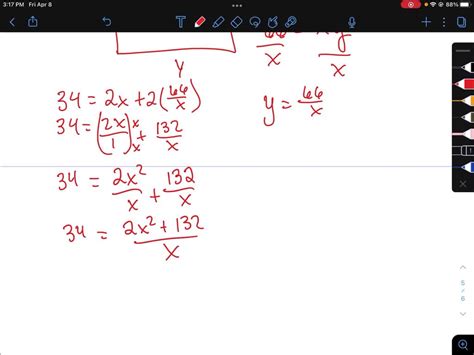 3:17 PM Fri Apr 8
88%
66 = xy
x x
y
34 = 2x + 2(66/x)
y = 66/x
34 = (2x/1)x/x + 132/x
34 = 2x²/x + 132/x
34 = 2x² + 132/x
5
6